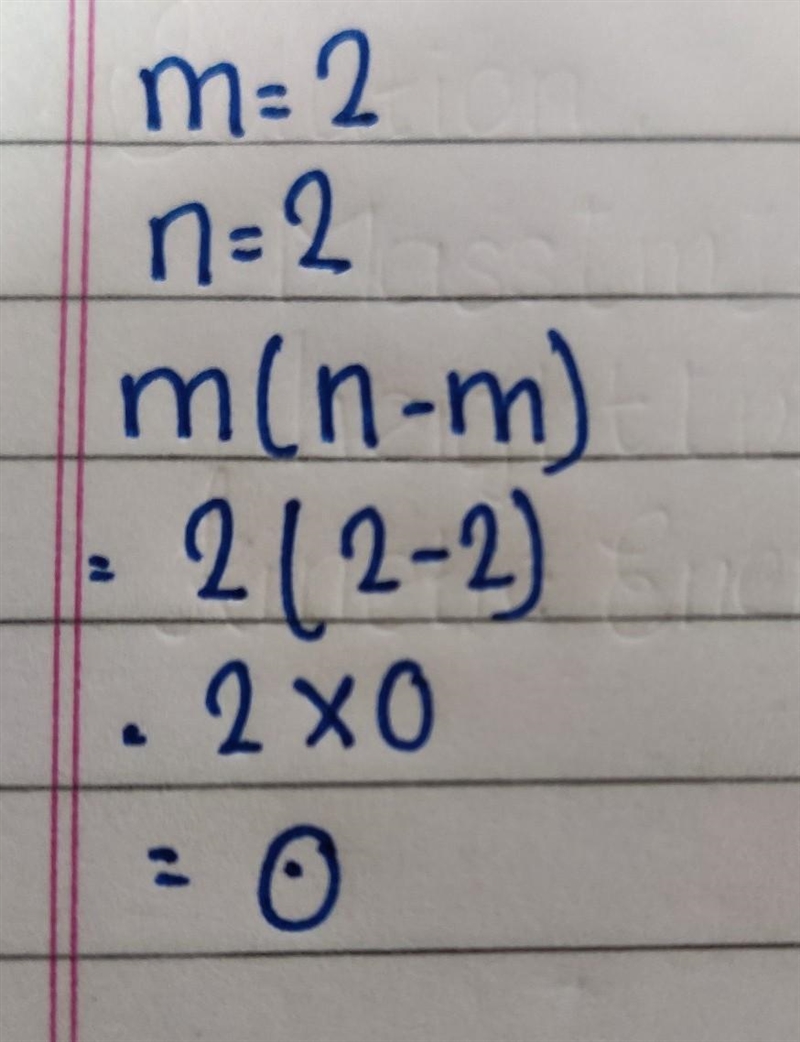 m=2
n=2
m(n-m)
= 2(2-2)
. 2×0
= 0